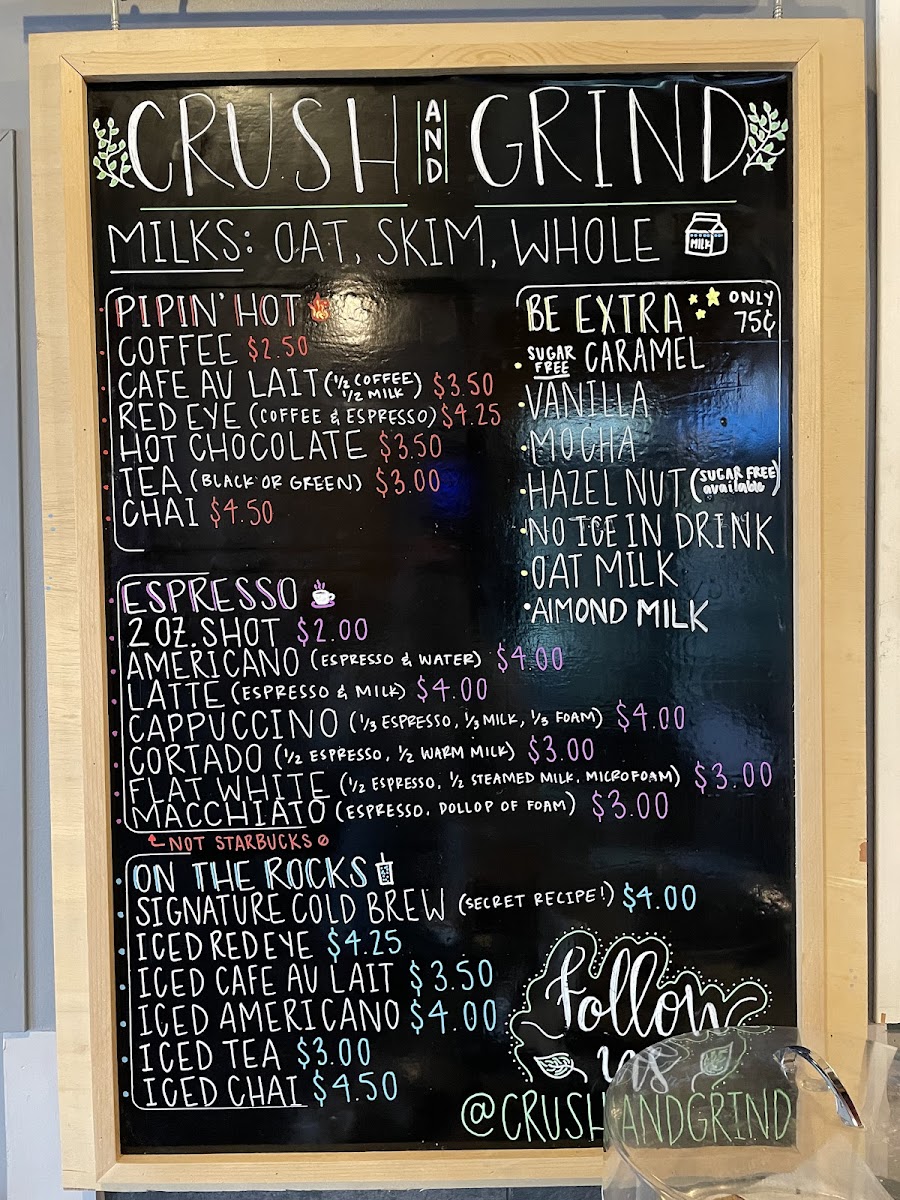 CRUSH AND GRIND
MILKS: OAT, SKIM, WHOLE
MILK
PIPIN' HOT
COFFEE $2.50
CAFE AU LAIT (1/2 COFFEE 1/2 MILK) $3.50
RED EYE (COFFEE & ESPRESSO) $4.25
HOT CHOCOLATE $3.50
TEA (BLACK OR GREEN) $3.00
CHAI $4.50
BE EXTRA ONLY 75¢
SUGAR FREE CARAMEL
VANILLA
MOCHA
HAZEL NUT (SUGAR FREE available)
NO ICE IN DRINK
OAT MILK
AlMOND MILK
ESPRESSO
2 OZ. SHOT $2.00
AMERICANO (ESPRESSO & WATER) $4.00
LATTE (ESPRESSO & MILK) $4.00
CAPPUCCINO (1/3 ESPRESSO, 1/3 MILK, 1/3 FOAM) $4.00
CORTADO (1/2 ESPRESSO, 1/2 WARM MILK) $3.00
FLAT WHITE (1/2 ESPRESSO, 1/2 STEAMED MILK, MICROFOAM) $3.00
MACCHIATO (ESPRESSO, DOLLOP OF FOAM) $3.00
NOT STARBUCKS
ON THE ROCKS
SIGNATURE COLD BREW (SECRET RECIPE!) $4.00
ICED RED EYE $4.25
ICED CAFE AU LAIT $3.50
ICED AMERICANO $4.00
ICED TEA $3.00
ICED CHAI $4.50
Follow
us
@CRUSHANDGRIND